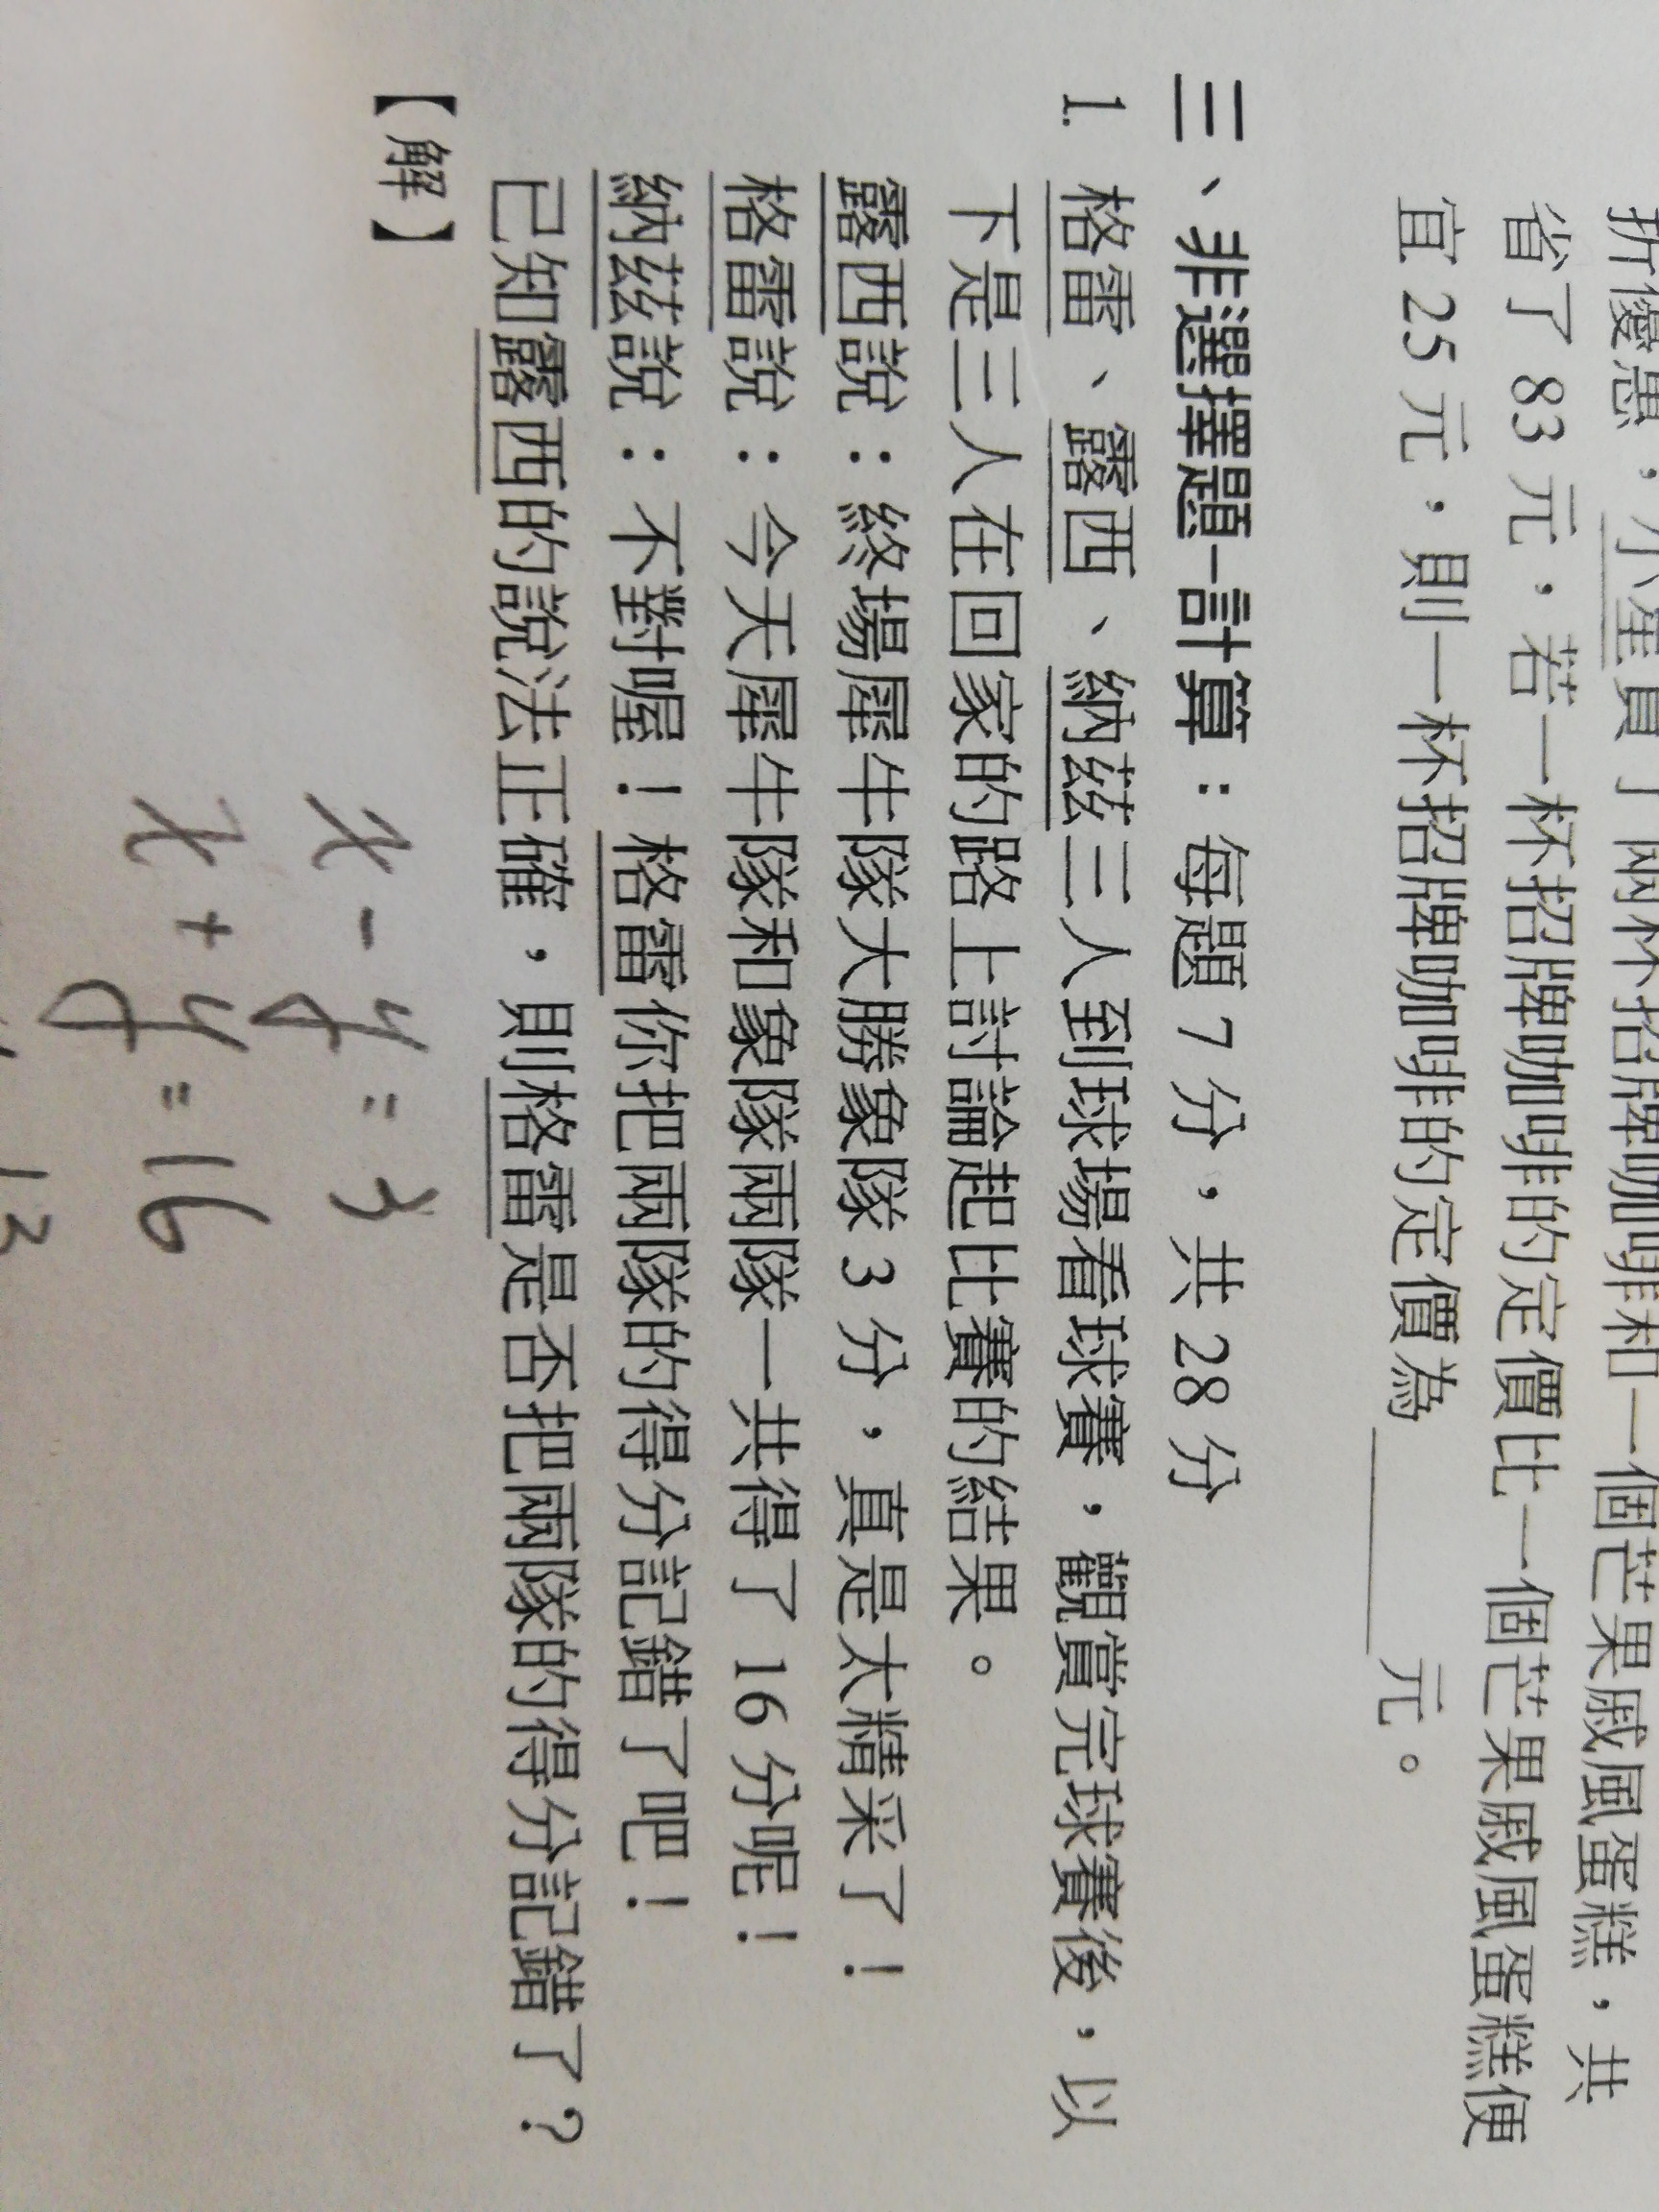 折優惠，小星買了兩杯招牌咖啡和一個芒果戚風蛋糕，共
省了 83 元，若一杯招牌咖啡的定價比一個芒果戚風蛋糕便
宜 25 元，則一杯招牌咖啡的定價為＿＿＿元。
三、非選擇題-計算：每題 7 分，共 28 分
1. 格雷、露西、納茲三人到球場看球賽，觀賞完球賽後，以
下是三人在回家的路上討論起比賽的結果。
露西說：終場犀牛隊大勝象隊 3 分，真是太精采了！
格雷說：今天犀牛隊和象隊兩隊一共得了 16 分呢！
納茲說：不對喔！格雷你把兩隊的得分記錯了吧！
已知露西的說法正確，則格雷是否把兩隊的得分記錯了？
【解】
x - y = 3
x + y = 16
13